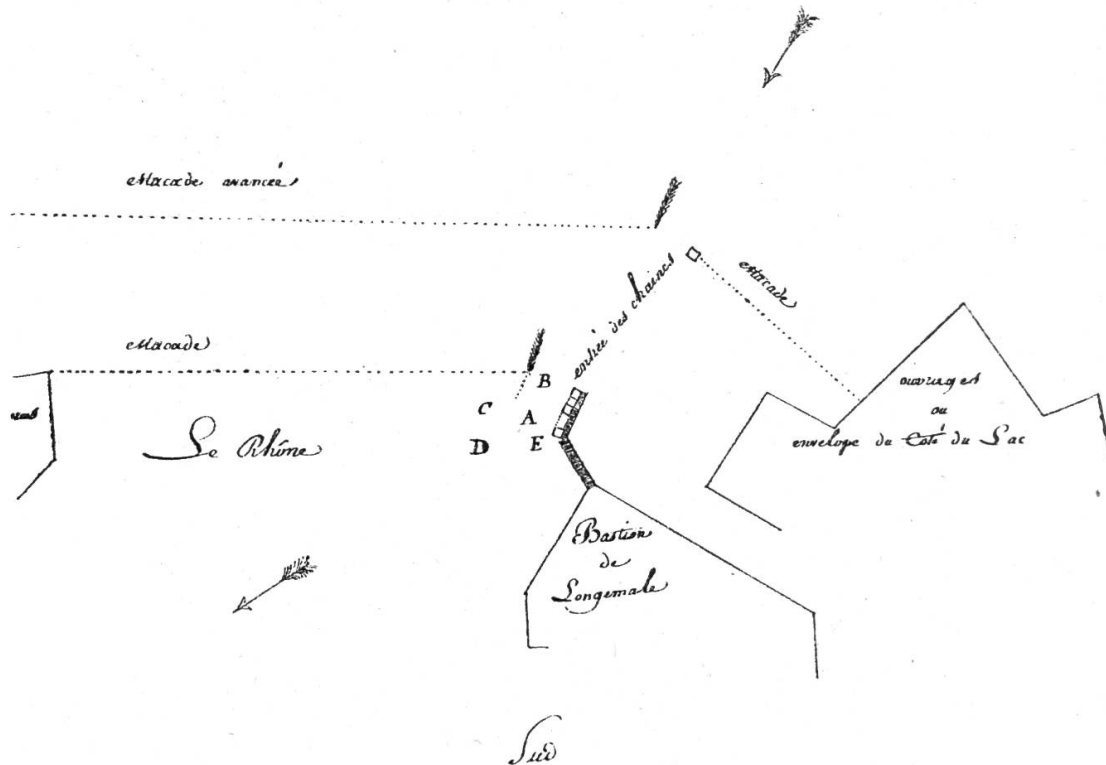 estacade avancée
estacade
entrée des chaines
estacade
B
C
A
D
E
Le Rhône
ouvrages
ou
envelope du Coté du Lac
Bastion
de
Longemale
Sud